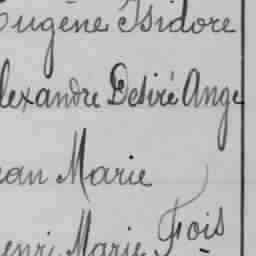 Eugène Isidore
lexandre Desiré Ange
ean Marie
enri Marie Frois